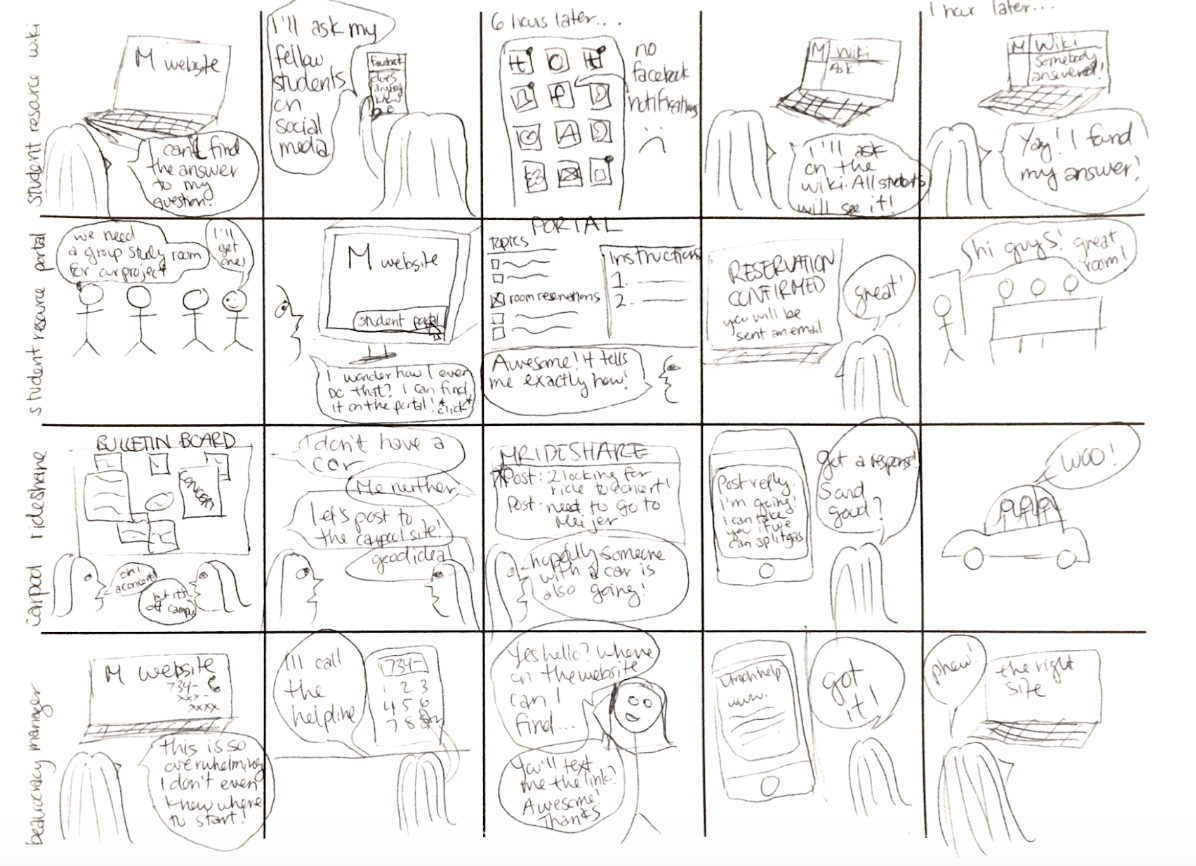 student resource wiki
M website
I can't find
the answer
to my
question?
I'll ask my
fellow
students
on
social
media
facebook
does
anyone
know
6 hours later...
no
facebook
notifications
:(
M Wiki
Ask
I'll ask
on the
wiki. All students
will see it!
1 hour later...
M Wiki
Somebody
answered!
Yay! I found
my answer!
student resource portal
we need
a group study room
for our project
I'll
get
one!
M website
student portal
I wonder how I even
DO that? I can find
it on the portal! *click*
PORTAL
topics
room reservations
Instructions
1.
2.
Awesome! It tells
me exactly how!
RESERVATION
CONFIRMED
you will be
sent an email
great!
hi guys!
great
room!
carpool rideshare
BULLETIN BOARD
CONCERT
oh!
a concert!
but it's
off campus
I don't have a
car
Me neither
Let's post to
the carpool site!
good idea!
MRIDESHARE
Post: 2 looking for
ride to concert!
Post: need to go to
Meijer
hopefully someone
with a car is
also going!
Post reply:
I'm going!
I can take
you if we
can split gas
got a response!
Sound
good?
WOO!
beaurocracy manager
M website
734-
xxx-
xxxx
this is so
overwhelming
I don't even
know where
to start!
I'll call
the
helpline
734-
1 2 3
4 5 6
7 8
Yes hello? Where
on the website
can I
find...
You'll text
me the link?
Awesome!
Thanks
Umich help:
www.
got
it!
phew!
the right
site